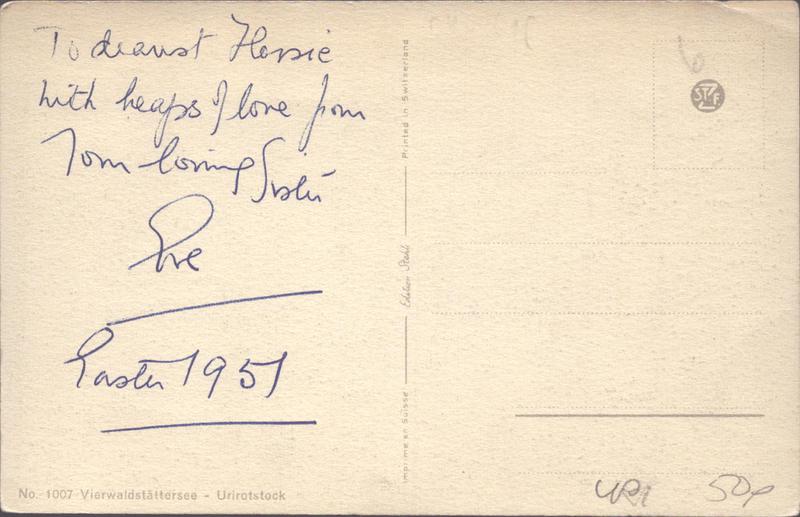 To dearest Flossie
with heaps of love from
Your loving Sister
Eve
Easter 1951
Printed in Switzerland
Edition Stehli
Imprimé en Suisse
No. 1007 Vierwaldstättersee - Urirotstock
URI
50p